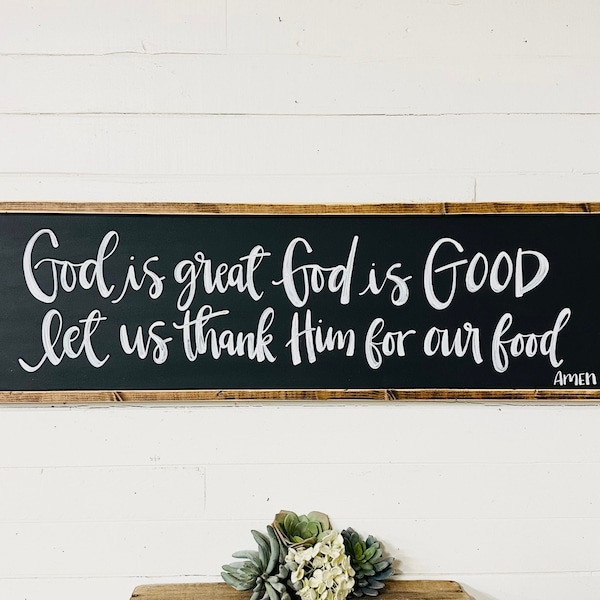 God is great God is GOOD
let us thank Him for our food
AMEN